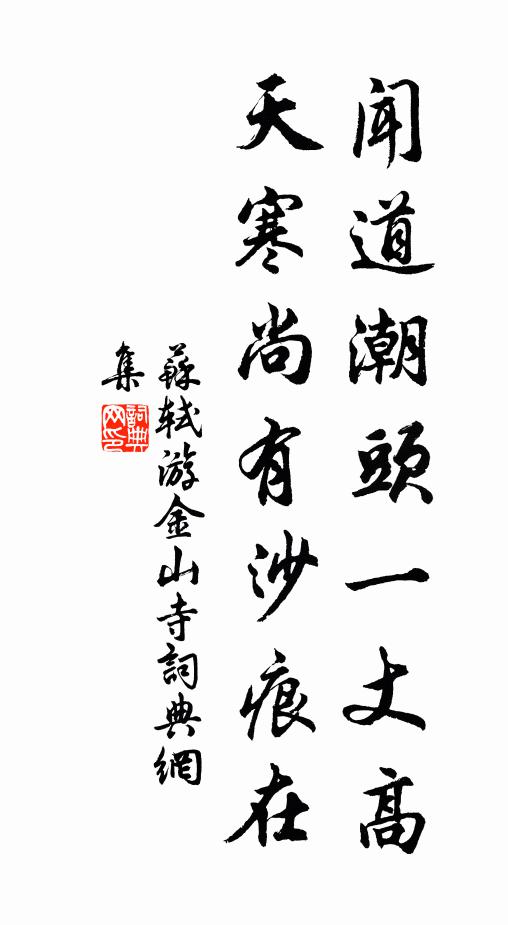 聞道潮頭一丈高
天寒尚有沙痕在
蘇軾游金山寺詞典網
集
詞典网印